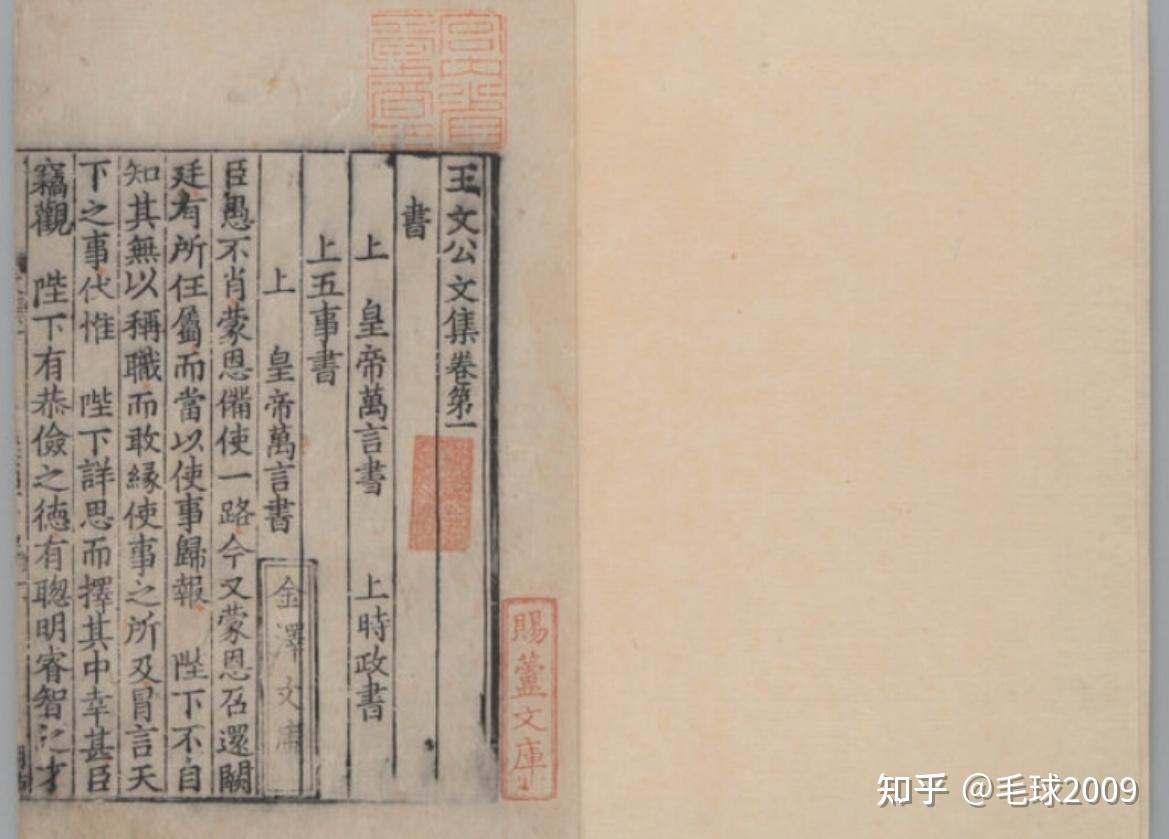 王文公文集卷第一
書
上　皇帝萬言書　上時政書
上五事書
上　皇帝萬言書
臣愚不肖蒙恩備使一路今又蒙恩召還闕
廷有所任屬而當以使事歸報　陛下不自
知其無以稱職而敢緣使事之所及冒言天
下之事伏惟　陛下詳思而擇其中幸甚臣
竊觀　陛下有恭儉之德有聰明睿智之才
金澤文庫
賜蘆文庫
知乎 @毛球2009